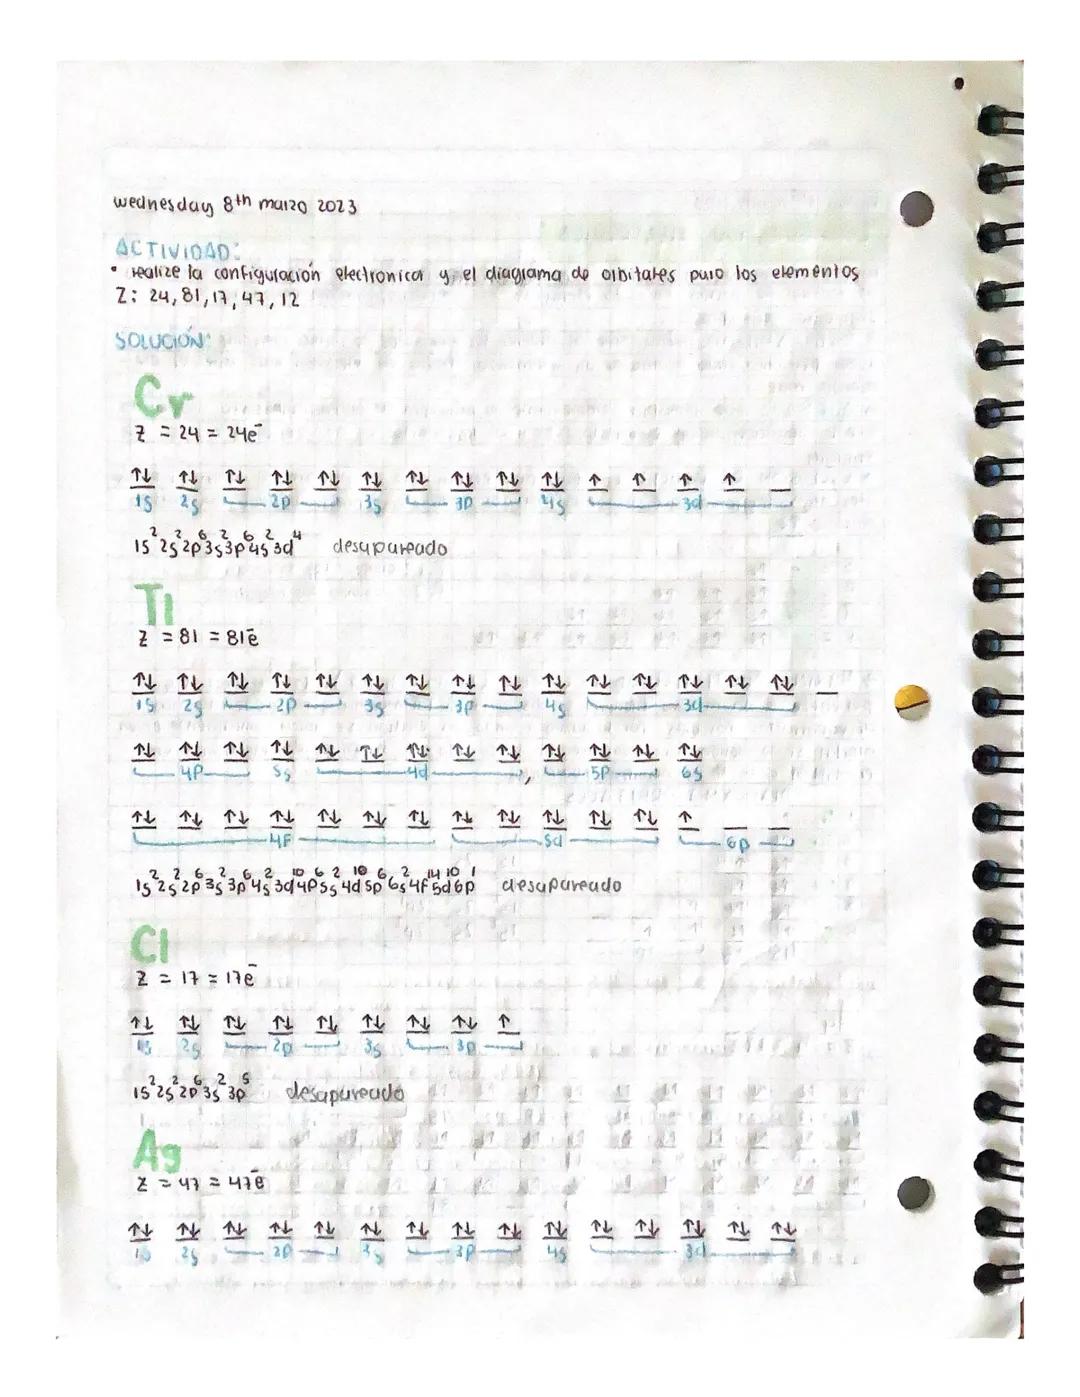 wednesday 8th marzo 2023
ACTIVIDAD:
• realize la configuración electronica y el diagrama de orbitales para los elementos
Z: 24, 81, 17, 47, 12
SOLUCIÓN:
Cr
Z = 24 = 24e⁻
↑↓ ↑↓ ↑↓ ↑↓ ↑↓ ↑↓ ↑↓ ↑↓ ↑↓ ↑↓ ↑ ↑ ↑ ↑ _
1s 2s 2p 3s 3p 4s 3d
1s² 2s² 2p⁶ 3s² 3p⁶ 4s² 3d⁴ desapareado
Tl
Z = 81 = 81e⁻
↑↓ ↑↓ ↑↓ ↑↓ ↑↓ ↑↓ ↑↓ ↑↓ ↑↓ ↑↓ ↑↓ ↑↓ ↑↓ ↑↓ ↑↓ _
1s 2s 2p 3s 3p 4s 3d
↑↓ ↑↓ ↑↓ ↑↓ ↑↓ ↑↓ ↑↓ ↑↓ ↑↓ ↑↓ ↑↓ ↑↓ ↑↓
4p 5s 4d, 5p 6s
↑↓ ↑↓ ↑↓ ↑↓ ↑↓ ↑↓ ↑↓ ↑↓ ↑↓ ↑↓ ↑↓ ↑↓ ↑ _ _
4f 5d 6p
1s² 2s² 2p⁶ 3s² 3p⁶ 4s² 3d¹⁰ 4p⁶ 5s² 4d¹⁰ 5p⁶ 6s² 4f¹⁴ 5d¹⁰ 6p¹ desapareado
Cl
Z = 17 = 17e⁻
↑↓ ↑↓ ↑↓ ↑↓ ↑↓ ↑↓ ↑↓ ↑↓ ↑
1s 2s 2p 3s 3p
1s² 2s² 2p⁶ 3s² 3p⁵ desapareado
Ag
Z = 47 = 47e⁻
↑↓ ↑↓ ↑↓ ↑↓ ↑↓ ↑↓ ↑↓ ↑↓ ↑↓ ↑↓ ↑↓ ↑↓ ↑↓ ↑↓ ↑↓
1s 2s 2p 3s 3p 4s 3d